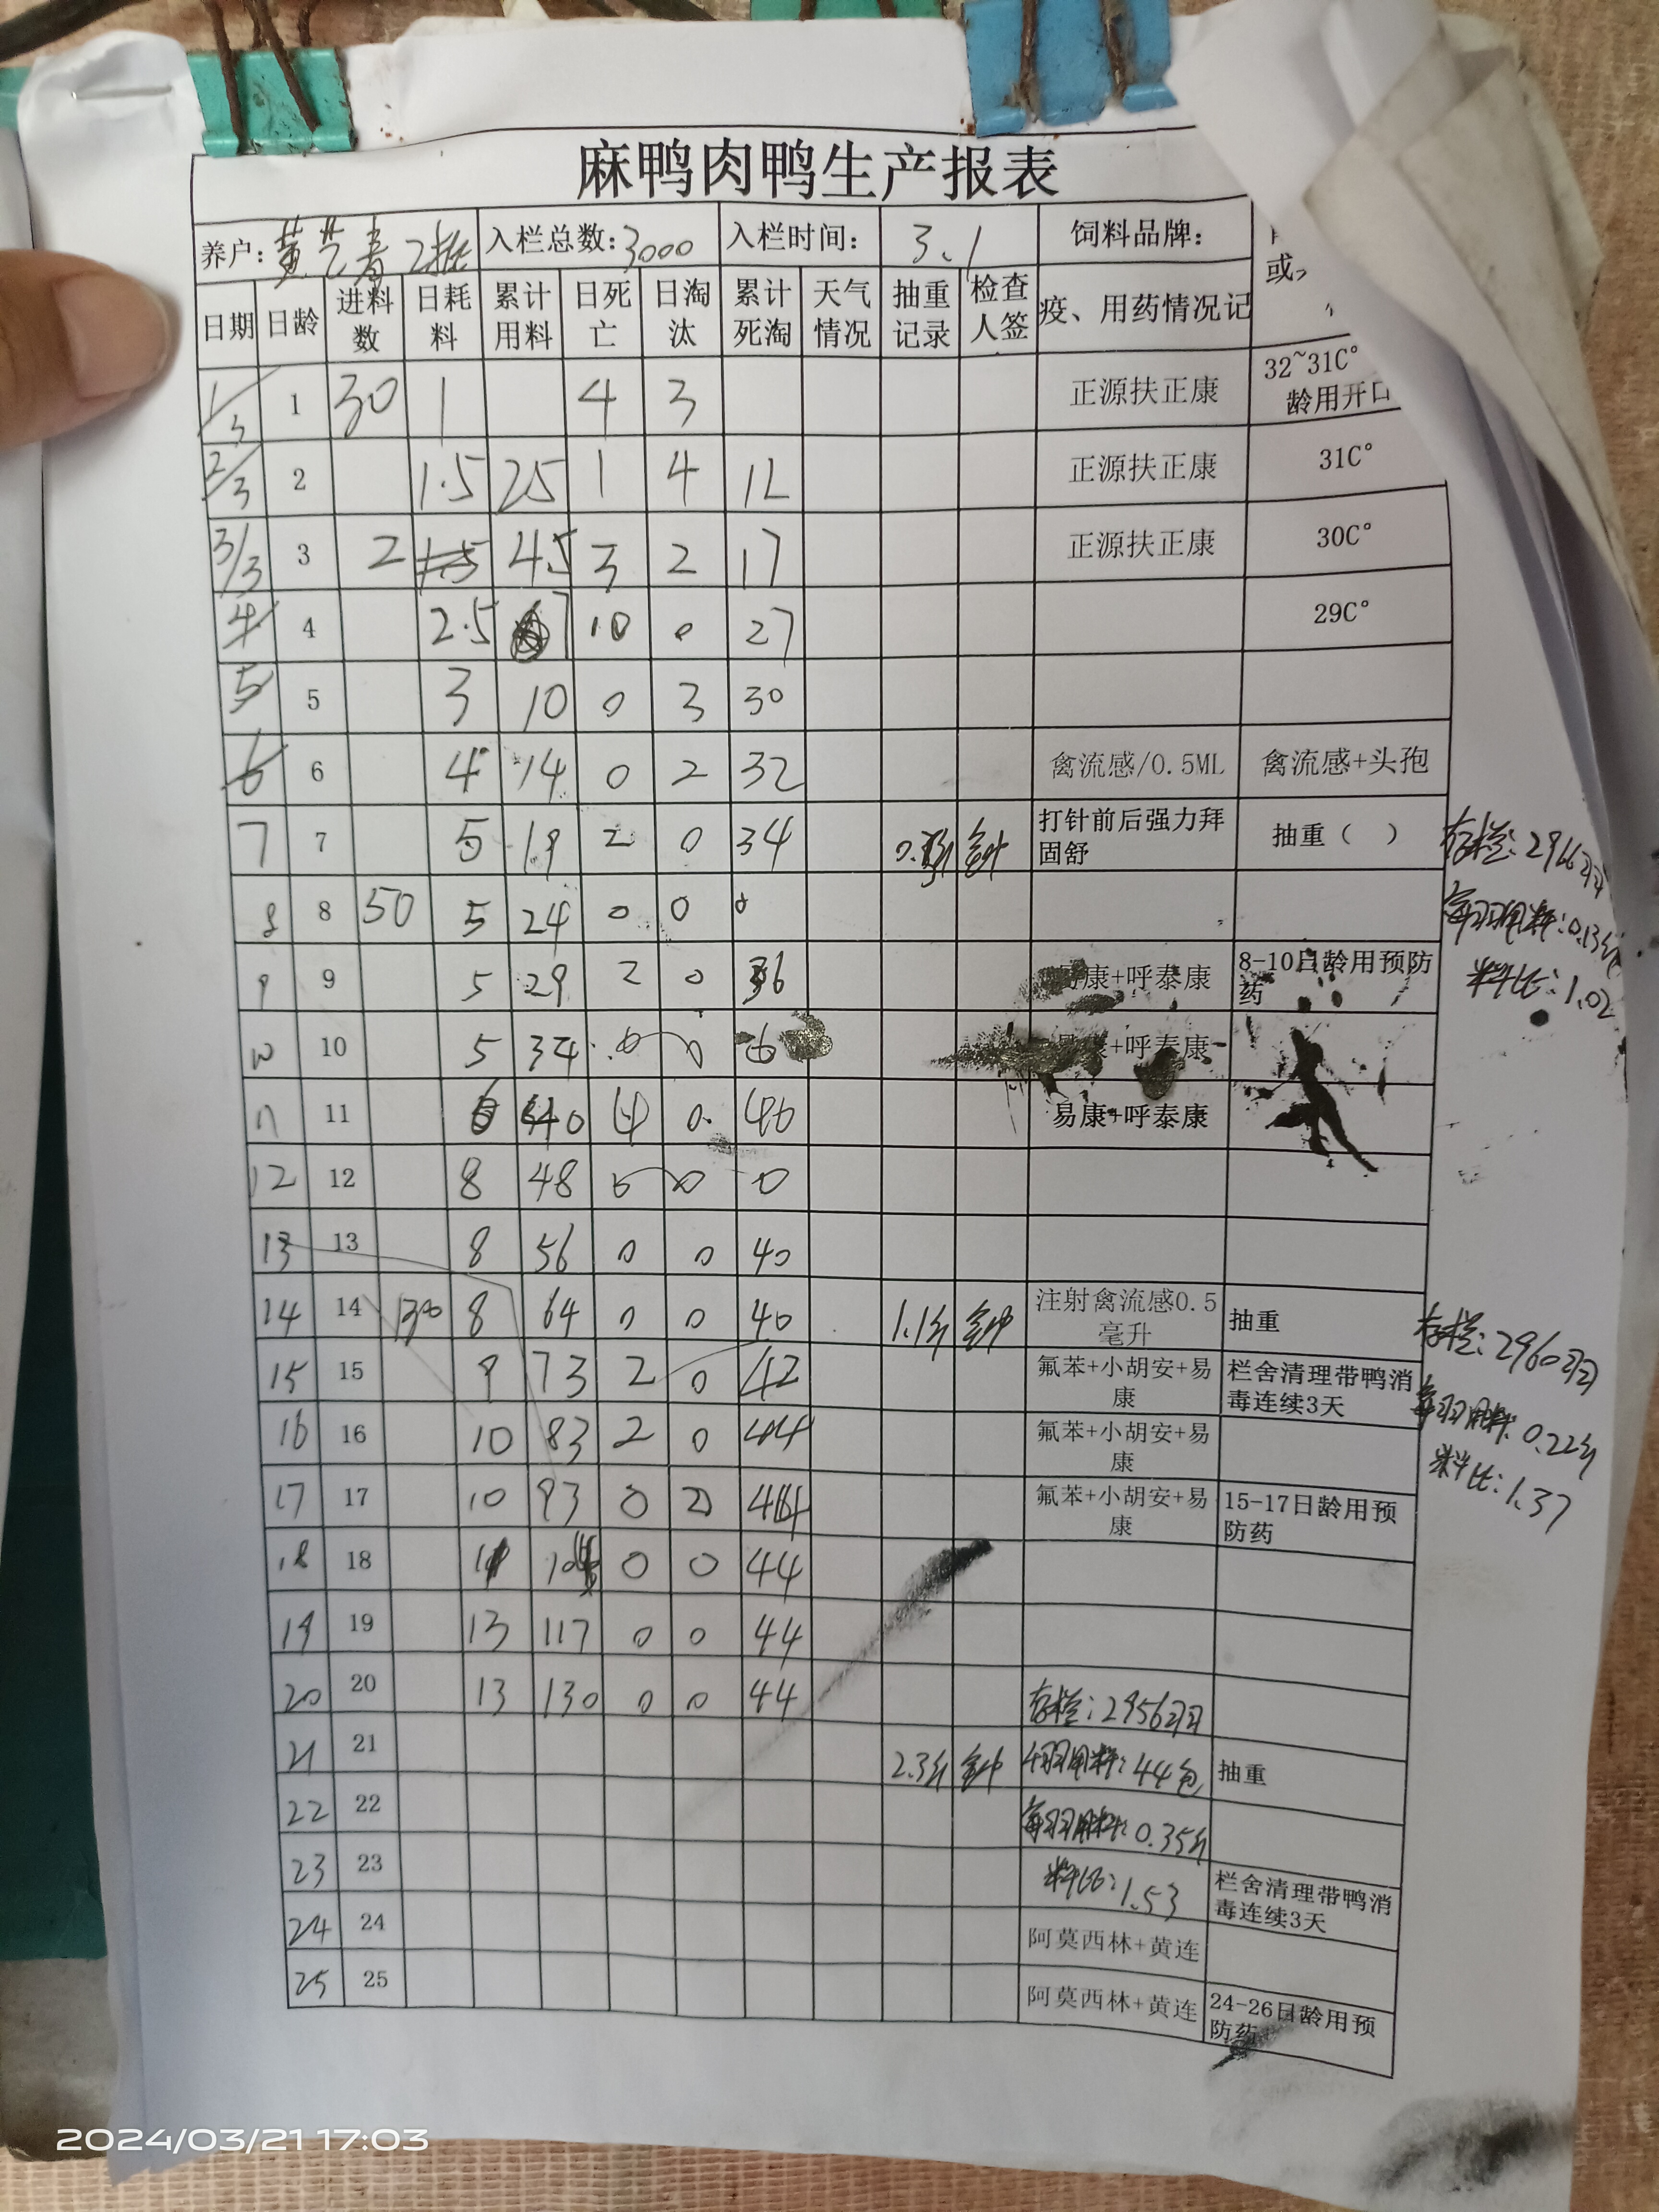 麻鸭肉鸭生产报表
养户: 2批 入栏总数:3000 入栏时间: 3.1 饲料品牌:
日期 日龄 进料数 日耗料 累计用料 日死亡 日淘汰 累计死淘 天气情况 抽重记录 检查人签 疫、用药情况记 或
1/3 1 30 1 4 3 正源扶正康 32~31C° 龄用开口
2/3 2 1.5 25 1 4 12 正源扶正康 31C°
3/3 3 2 1.5 4.5 3 2 17 正源扶正康 30C°
4 4 2.5 7 10 0 27 29C°
5 5 3 10 0 3 30
6 6 4 14 0 2 32 禽流感/0.5ML 禽流感+头孢
7 7 5 19 2 0 34 打针前后强力拜固舒 抽重（ ） 存栏:2966羽
8 8 50 5 24 0 0 0 每羽用料:0.13斤
9 9 5 29 2 0 36 康+呼泰康 8-10日龄用预防药 料比:1.02
10 10 5 34 0 0 康+呼泰康
11 11 6 40 4 0 40 易康+呼泰康
12 12 8 48 0 0 0
13 13 8 56 0 0 40
14 14 130 8 64 0 0 40 1.1斤 注射禽流感0.5毫升 抽重 存栏:2960羽
15 15 9 73 2 0 42 氟苯+小胡安+易康 栏舍清理带鸭消毒连续3天 每羽用料:0.22斤
16 16 10 83 2 0 44 氟苯+小胡安+易康 料比:1.37
17 17 10 93 0 44 氟苯+小胡安+易康 15-17日龄用预防药
18 18 11 0 0 44
19 19 13 117 0 0 44
20 20 13 130 0 0 44 存栏:2956羽
21 21 2.3斤 用料:44包 抽重
22 22 每羽用料:0.35斤
23 23 料比:1.53 栏舍清理带鸭消毒连续3天
24 24 阿莫西林+黄连
25 25 阿莫西林+黄连 24-26日龄用预防药
2024/03/21 17:03